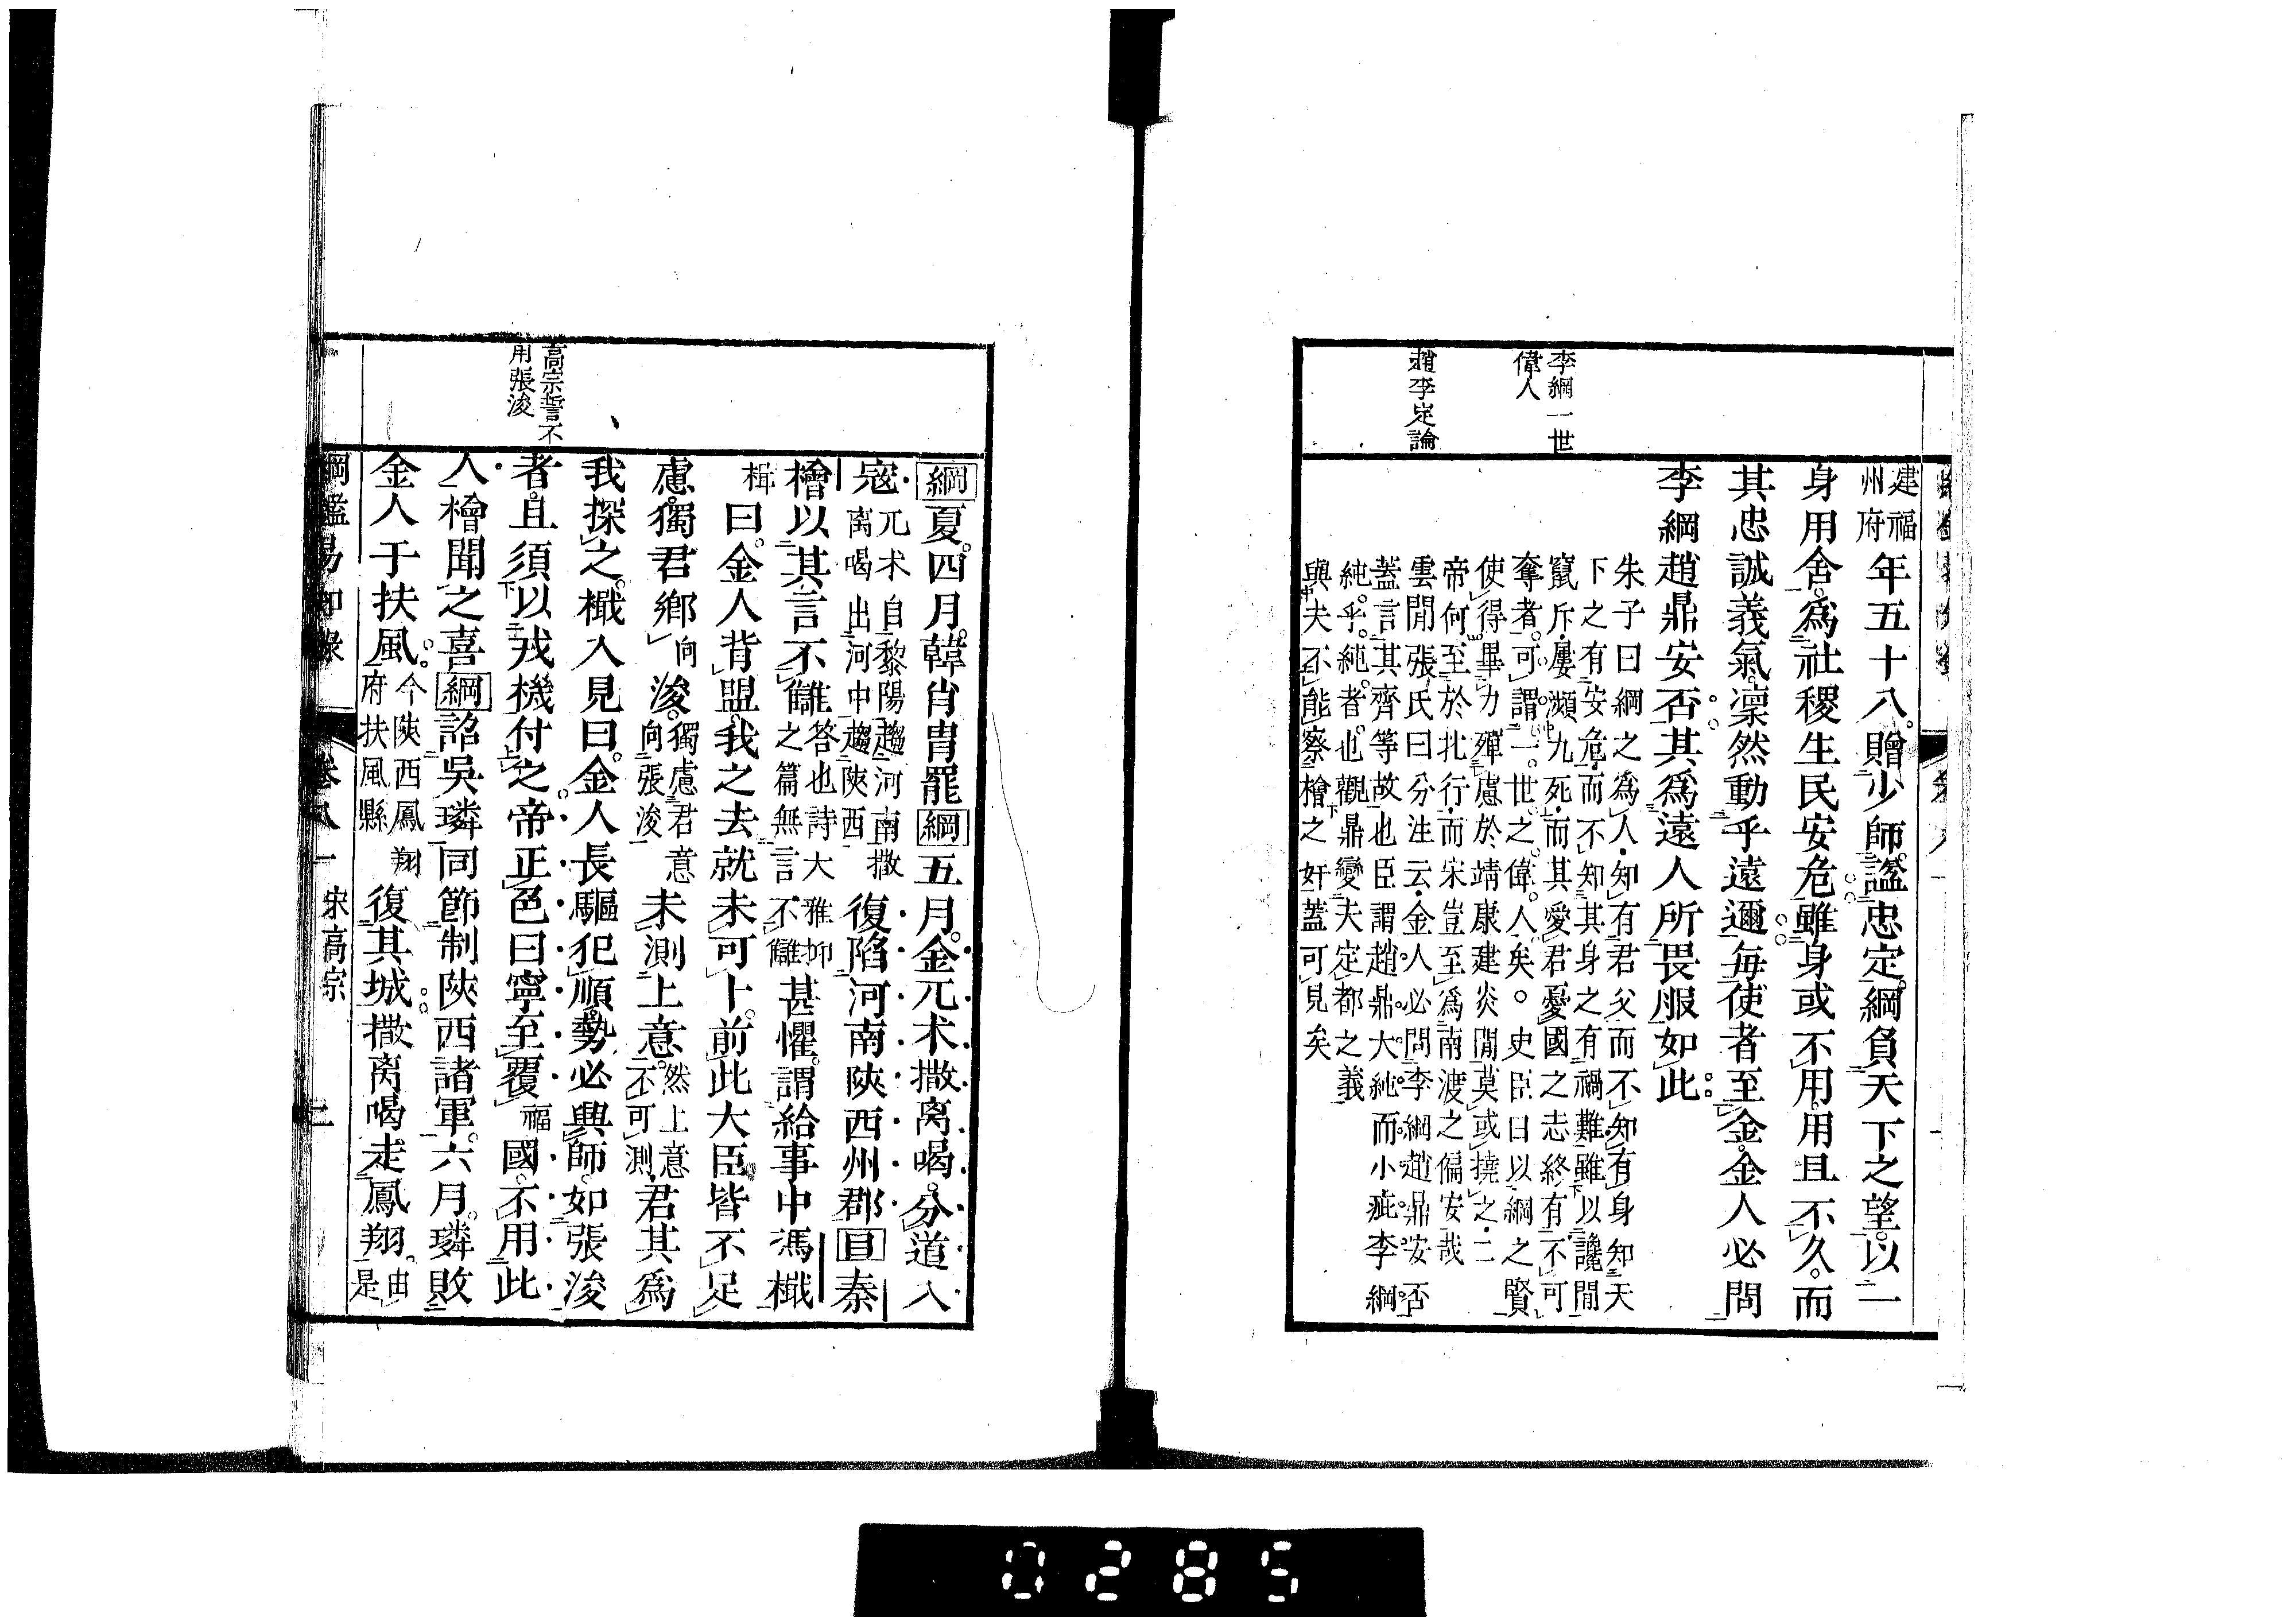 李綱一世
偉人
趙李定論
建福
州府
年五十八。贈少師。謚忠定。綱負天下之望。以一
身用舍。爲社稷生民安危。雖身或不用。用且不久。而
其忠誠義氣。凜然動乎遠邇。每使者至金。金人必問
李綱趙鼎安否。其爲遠人所畏服如此
朱子曰綱之爲人知有君父而不知有身知天
下之有安危而不知其身之有禍難雖以讒閒
竄斥屢瀕九死而其愛君憂國之志終有不可
奪者。可謂一世之偉人矣。史臣曰以綱之賢
使得畢力殫慮於靖康建炎閒莫或撓之二
帝何至於北行而宋豈至爲南渡之偏安哉
雲閒張氏曰分注云金人必問李綱趙鼎安否
蓋言其齊等故也臣謂趙鼎大純而小疵李綱
純乎純者也觀鼎變夫定都之義
與夫不能察檜之奸蓋可見矣
高宗誓不
用張浚
綱夏。四月。韓肖胄罷綱五月。金兀术撒离喝。分道入
寇
兀术自黎陽趨河南撒
离喝出河中趨陝西
復陷河南陝西州郡目秦
檜以其言不讎
答也詩大雅抑
之篇無言不讎
甚懼。謂給事中馮檝
楫
曰。金人背盟。我之去就未可卜。前此大臣皆不足
慮。獨君鄉
向
浚。
獨慮君意
向張浚
未測上意。
然上意
不可測
君其爲
我探之。檝入見曰。金人長驅犯順。勢必興師。如張浚
者。且須以戎機付之。帝正色曰寧至覆
福
國。不用此
人。檜聞之喜綱詔吳璘同節制陝西諸軍。六月。璘敗
金人于扶風。
今陝西鳳翔
府扶風縣
復其城。撒离喝走鳳翔。
由
是
綱鑑易知錄
卷八一
宋高宗
二
0285